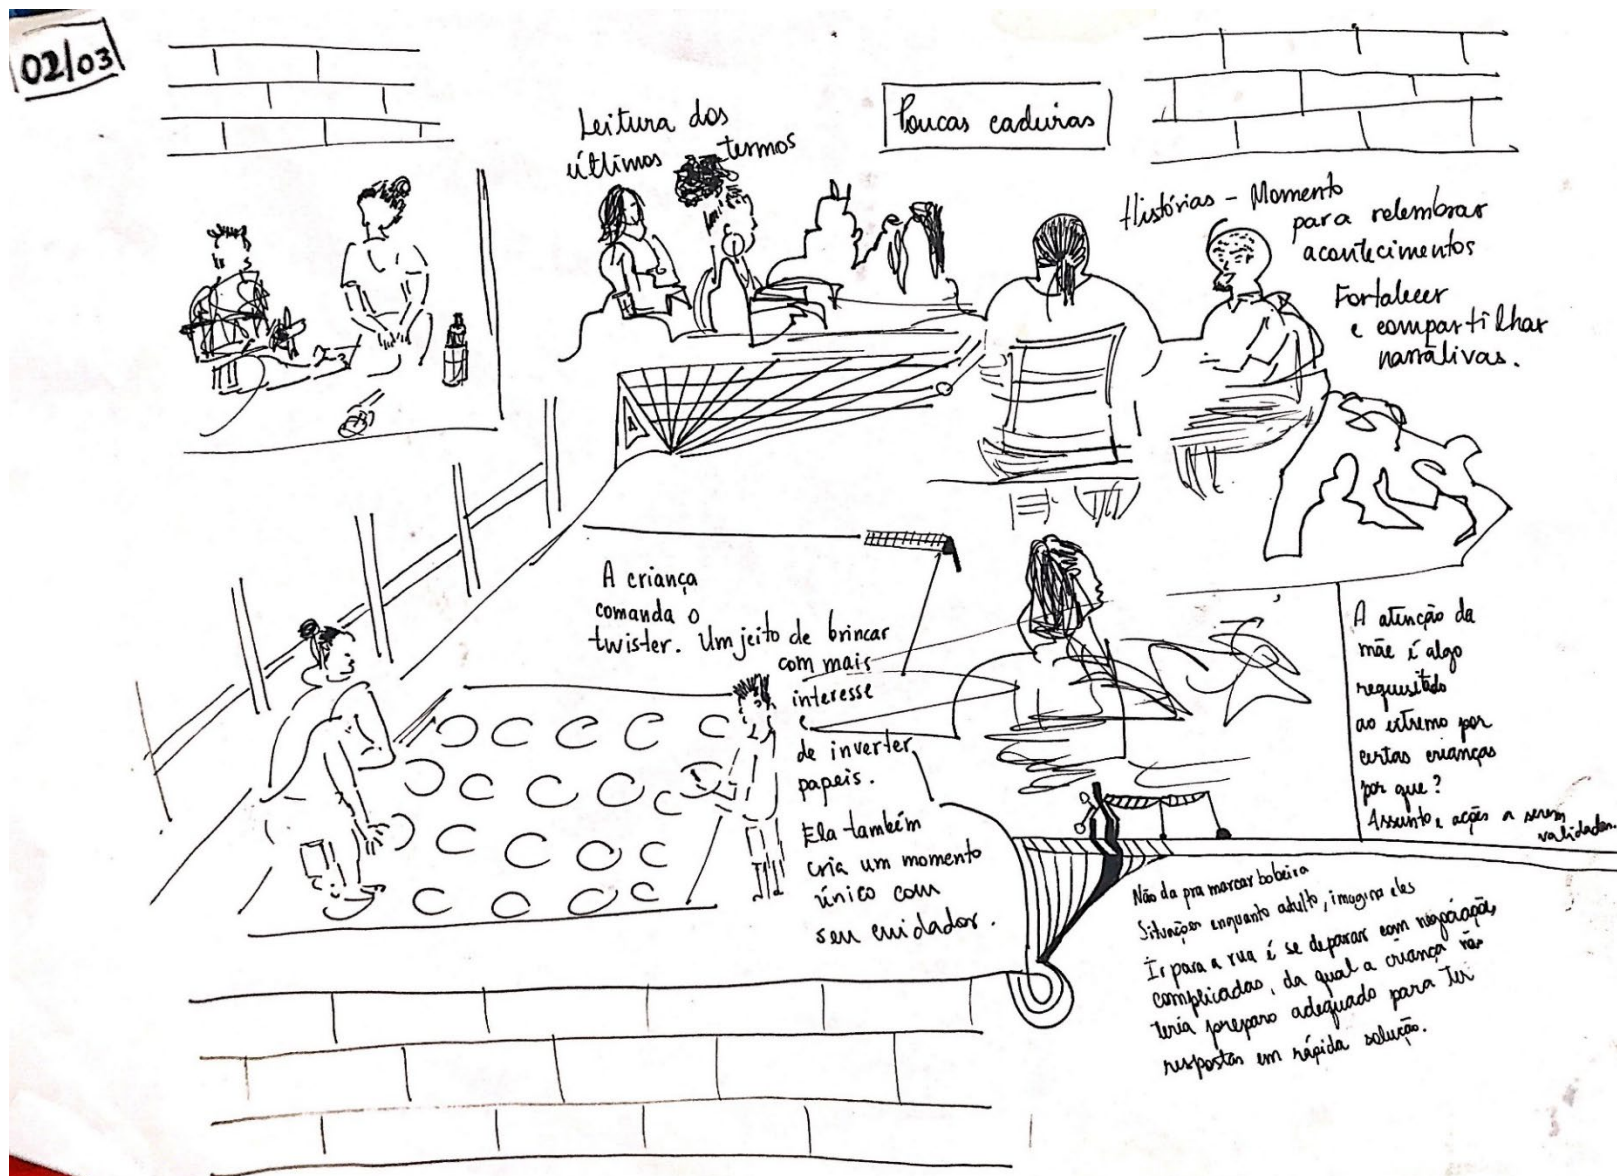 02/03
Leitura dos
últimos termos
Poucas cadeiras
Histórias - Momento
para relembrar
acontecimentos
Fortalecer
e compartilhar
narrativas.
A criança
comanda o
twister. Um jeito de brincar
com mais
interesse
e
de inverter
papeis.
Ela também
cria um momento
único com
seu cuidador.
A atenção da
mãe é algo
requisitado
ao extremo por
certas crianças
por que?
Assunto e ações a serem
validadas.
Não da pra marcar bobeira
Situações enquanto adulto, imagina eles
Ir para a rua é se deparar com negociações
complicadas, da qual a criança não
teria preparo adequado para ter
respostas em rápida solução.